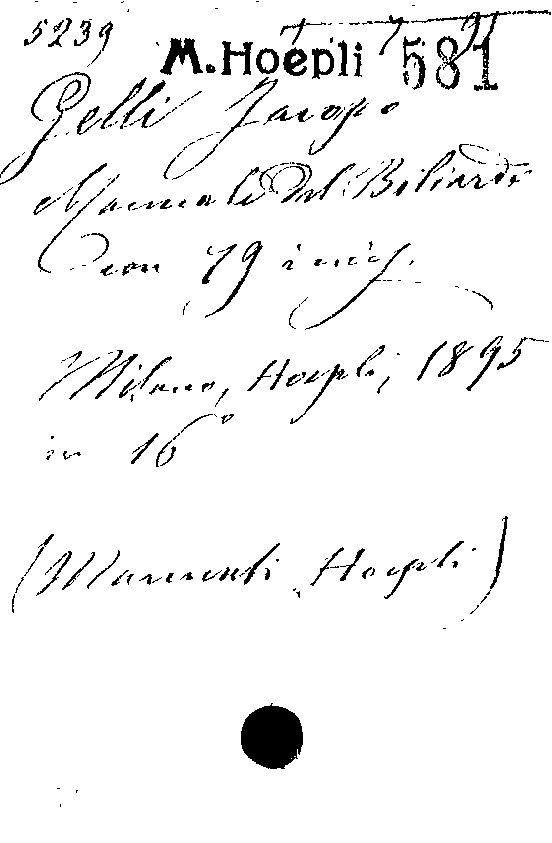 5239
M. Hoepli 581
Gelli Jacopo
Manuale del Biliardo
con 79 incis.
Milano, Hoepli, 1895
in 16°
(Manuali Hoepli)